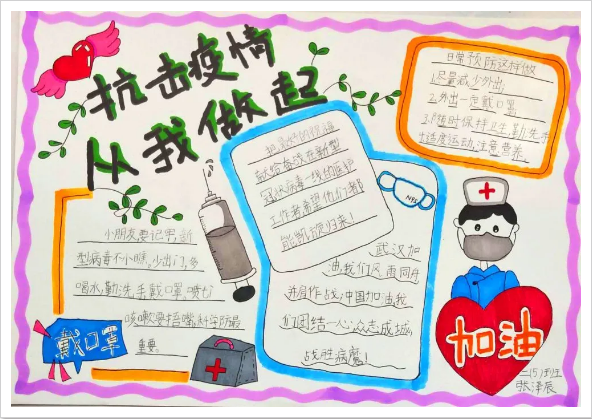 抗击疫情
从我做起
日常预防这样做
1.尽量减少外出;
2.外出一定戴口罩
3.随时保持卫生,勤洗手
4.适度运动,注意营养。
献给奋战在新型
冠状病毒一线的医护
工作者希望他们都
能凯旋归来!
N95
武汉加
油,我们风雨同舟
并肩作战,中国加油,我
们团结一心,众志成城,
战胜病魔!
小朋友要记牢,新
型病毒不小瞧,少出门,多
喝水,勤洗手戴口罩,喷嚏
咳嗽要捂嘴,科学防最
重要。
戴口罩
加油
二(5)班
张泽辰